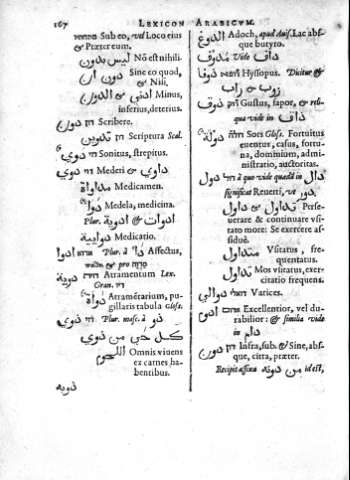 167 LEXICON ARABICVM.
Sub eo, vel Loco eius
& Præter eum.
ليس بدون Nõ est nihili.
دون ان Sine eo quod,
& Nisi.
ادني & الدون Minus,
inferius, deterius.
دون Scribere.
تدوين Scriptura Scal.
دوي Sonitus, strepitus.
داوي & دوي Mederi
مداواة Medicamen.
دوا Medela, medicina.
Plur. ادوية & ادوات
دوايية Medicatio.
ادوا Plur. à دا Affectus,
דויה Atramentum Lex.
Gran.
دواة Atramẽtarium, pu-
gillaris tabula Gloss.
دوي Plur. masc. à ذو
كل حي من ذوي
اللحوم Omnis viuens
ex carnes ha-
bentibus.
دوية
الدوغ Adoch, apud Auis. Lac abs-
que butyro.
مدوف Vide داف
دوفا Hyssopus. Dicitur &
زوب & زاب
دوق Gustus, sapor, & rel-
qua vide in داف
دولة Sors Gloss. Fortuitus
euentus, casus, fortu-
na, dominium, admi-
nistratio, auctoritas.
دول à quo vide quædã in دال
significat Reuerti,
داول & تداول Perse-
uerare & continuare vsi-
tato more: Se exercere as-
siduè.
متداول Vsitatus, fre-
quentatus.
تداول Mos vsitatus, exer-
citatio frequens.
دوالي Varices.
ادوم Excellentior, vel du-
rabilior: & similia vide
in دام
دون Infra, sub. & Sine, abs-
que, citra, præter.
Recipit affixa من دونه id est,